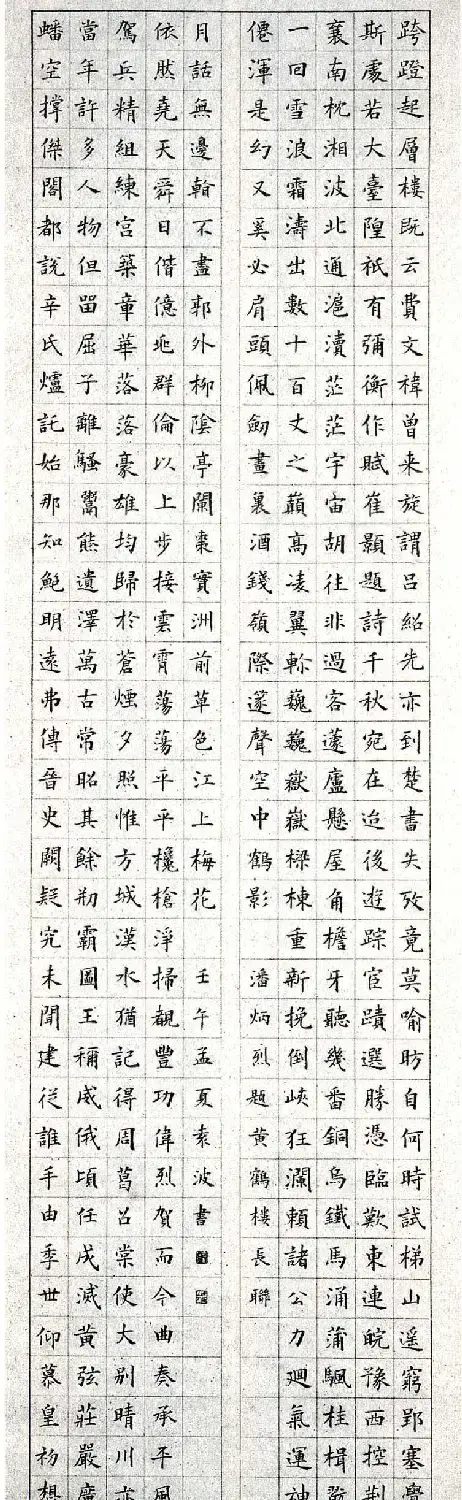 跨蹬起層樓既云費文褘曾来旋謂呂紹先亦到楚書失攷竟莫喻昉自何時試梯山遥窮郢塞
斯處若大臺隍祇有彌衡作賦崔顥題詩千秋宛在迨後遊踪宦蹟選勝憑臨歎東連皖豫西控荆
襄南枕湘波北通滬瀆茫茫宇宙胡往非過客蘧廬懸屋角檐牙聽幾番銅烏鐵馬涌蒲颿桂楫
一回雪浪霜濤出數十百丈之巔高凌翼軫巍巍嶽嶽樑棟重新挽倒峽狂瀾賴諸公力廻氣運神
僊渾是幻又奚必肩頭佩劒晝裏酒錢嶺際邃聲空中鶴影
潘炳烈題黄鶴樓長聯
蟠空撐傑閣都說辛氏爐託始那知鮑明遠弗傳晉史闕疑究未聞建従誰手由季世仰慕皇初想
當年許多人物但畱屈子離騷鬻熊遺澤萬古常昭其餘剏霸圖王稱威俄頃任成滅黄弦莊嚴廣
駕兵精組練宮築章華落落豪雄均歸於蒼煙夕照惟方城漢水猶記得周葛召棠使大別晴川亦
依然堯天舜日偕億兆群倫以上步接雲霄蕩蕩平平欃槍淨掃覩豐功偉烈賀而今曲奏承平風
月話無邊輪不盡郭外柳陰亭闌棗實洲前草色江上梅花
壬午孟夏袁波書